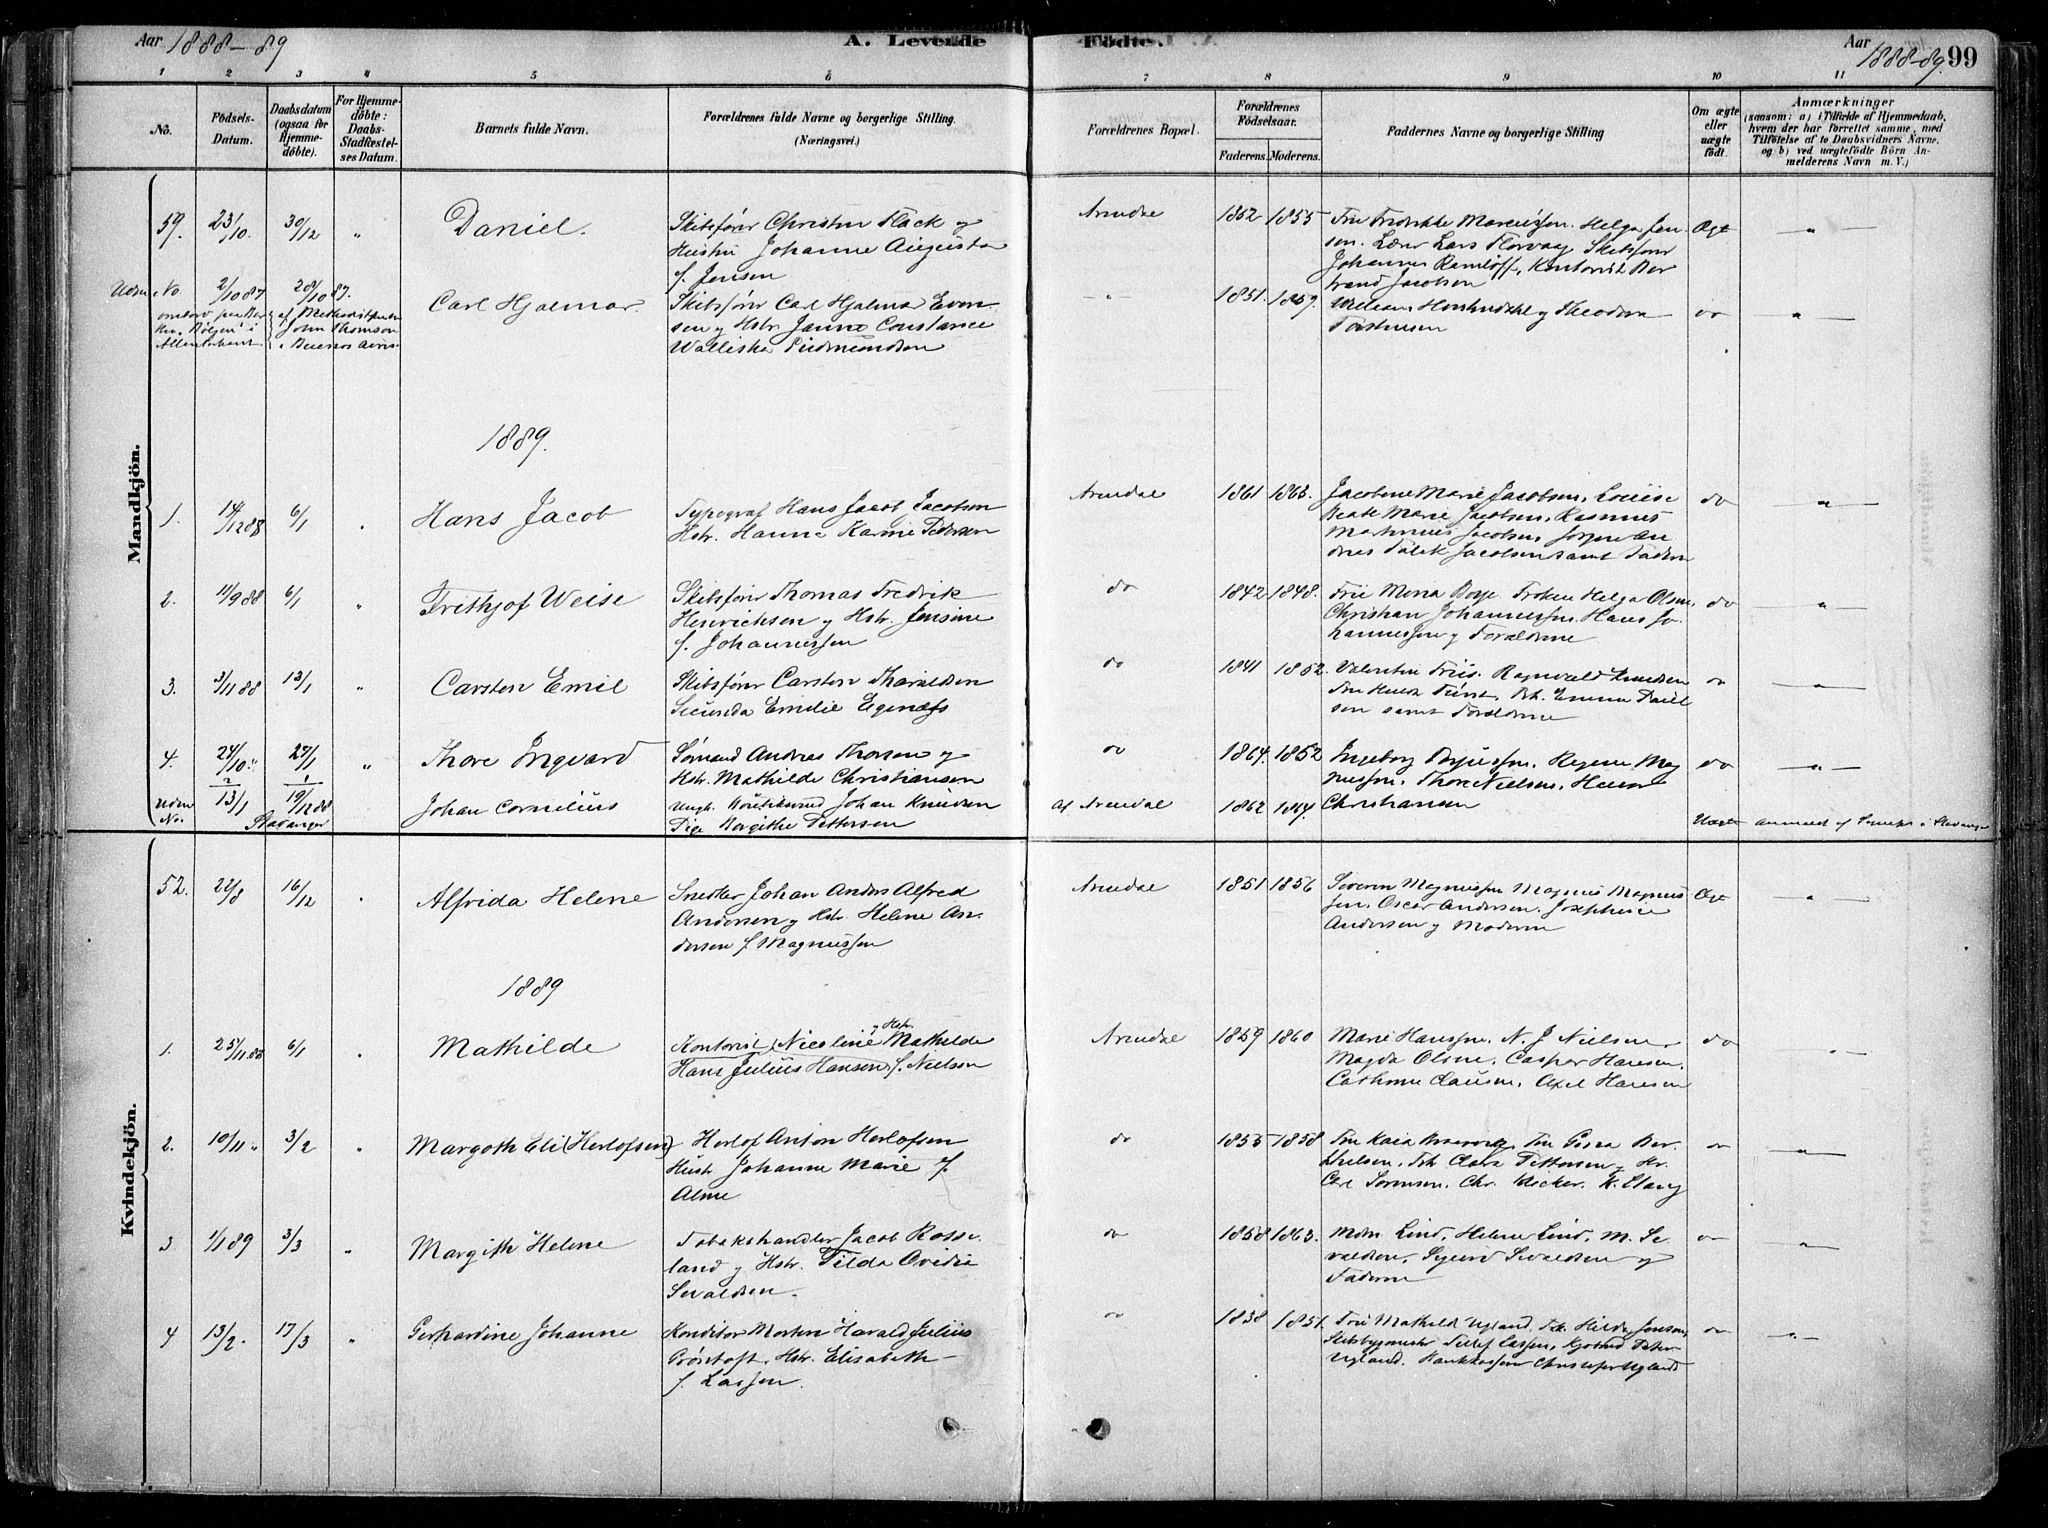 Aar 1888-89
A. Levende
Födte.
Aar 1888-89.
99
1 2 3 4 5 6 7 8 9 10 11
No.
Födsels-Datum.
Daabsdatum (ogsaa for Hjemme-döbte).
For Hjemme-döbte: Daabs-Stadfæstel-ses Datum.
Barnets fulde Navn.
Forældrenes fulde Navne og borgerlige Stilling.
(Næringsvei.)
Forældrenes Bopæl.
Forældrenes Födselsaar.
Faderens. Moderens.
Faddernes Navne og borgerlige Stilling
Om ægte eller uægte födt.
Anmærkninger
(saasom: a) i Tilfælde af Hjemmedaab,
hvem der har forrettet samme, med
Tilföielse af to Daabsvidners Navne,
og b) ved uægtefödte Börn An-
melderens Navn m. V.)
Mandkjön.
59. 23/10. 30/12 " Daniel. Skibsfører Christen Flack og
Hustru Johanne Augusta
f. Jensen
Arendal 1852 1855 Fru Fredrikke Marcussen. Helga Jen-
sen. Lærer Lars Florvaag Skibsfører
Johannes Ramløff, Kontorist Ber
trand Jacobsen
Ægt "
Uden No 2/10 87 28/10 87. Carl Hjalmar. Skibsfører Carl Hjalmar Even-
sen og Hstr. Janna Constance
Walliska Gudmundsen
ombord paa Bar
ken "Bölgen" i
Atlanterhavet.
af Methodistpræsten
John Thomson
i Buenos Aires
" 1851. 1859. William og Theodora
Torstensen
do "
1889.
1. 14/12 88 6/1 " Hans Jacob Typograf Hans Jacob Jacobsen
Hstr. Hanna Karine Pedersen
Arendal 1861 1863. Jacobine Marie Jacobsen, Louise
Beate Marie Jacobsen, Rasmus
Martinius Jacobsen, Jørgen An
dreas Falck Jacobsen samt Faderen
do "
2. 11/9 88 6/1 " Frithjof Weise Skibsfører Thomas Fredrik
Henrichsen og Hstr. Jensine
f. Johannessen
do 1842 1848. Frue Maria Boye Frøken Helga Olsen,
Christian Johannessen. Hans Jo
hannessen og Forældrene
do "
3. 3/11 88 13/1 " Carsten Emil Skibsfører Carsten Tharaldsen
Secunda Emilie Egenæs
do 1841 1852. Valentin Friis. Ragnvald Knudsen
Frk. Emma Paul
sen samt Forældrene
do "
4. 24/10 " 27/1 " Thore Ingvard Sømand Andreas Thorsen og
Hstr. Mathilde Christiansen
do 1864. 1852 Ingeborg Regine Mag
nussen, Thore Nielsen, Hansine
Christiansen
do "
Uden No. 13/1 19/12 88 Stavanger Johan Cornelius Ungk. Johan Knudsen
Pige Bergithe Pettersen
Af Arendal 1862 1864.
Uægte Anmeldt af i Stavanger
Kvindekjön.
52. 22/8 16/12 " Alfrida Helene Snedker Johan Anders Alfred
Andersen og Hstr. Helene An-
dersen f. Magnussen
Arendal 1851 1856 Severin Magnussen Magnus Magnus
sen. Oscar Andersen. Josephine
Andersen og Moderen
Ægt "
1889
1. 25/11 88 6/1 Mathilde Kontorist og Hstr. Nicoline Mathilde
Hans Julius Hansen, f. Nielsen
Arendal 1859 1860 Marie Hanssen. N. J. Nielsen
Magda Olsen. Casper Hansen.
Cathrine Clausen. Axel Hansen
do "
2. 10/11 " 3/2 " Margoth Eli (Herlofsen) Herlof Anton Herlofsen
Hustr Johanne Marie f.
Alme
do 1855 1858 Fru Kaia Fru Petra Ber
thelsen, Frk Clara Pettersen, Hr.
Carl Sørensen. Chr. Becker. K. Stang
do "
3 1/1 89 3/3 " Margith Helene Tobakshandler Jacob Rosse
land og Hstr. Tilda Ovidia
Sevaldsen.
do 1858 1863. Mdm Lind, Helene Lind, M. Se
valdsen, Sigurd Sevaldsen og
Faderen
do "
4 13/2 17/3 " Gerhardine Johanne Konditor Morten Harald Julius
Grøntoft. Hstr. Elisabeth
f. Lassen
do 1858 1851. Fru Mathild Ugland. Frk. Hilda Jensen,
Skibsbygmester Detlef Lassen, Kjøbmd Peter
Ugland. Bankkasserer Christopher Ugland
do "